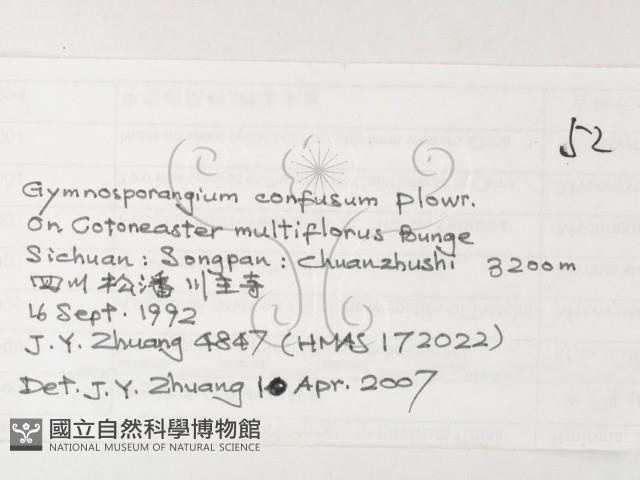 52
Gymnosporangium confusum Plowr.
On Cotoneaster multiflorus Bunge
Sichuan: Songpan: Chuanzhushi 3200m
四川 松潘 川主寺
16 Sept. 1992
J.Y. Zhuang 4847 (HMAS 172022)
Det. J.Y. Zhuang 10 Apr. 2007
國立自然科學博物館
NATIONAL MUSEUM OF NATURAL SCIENCE